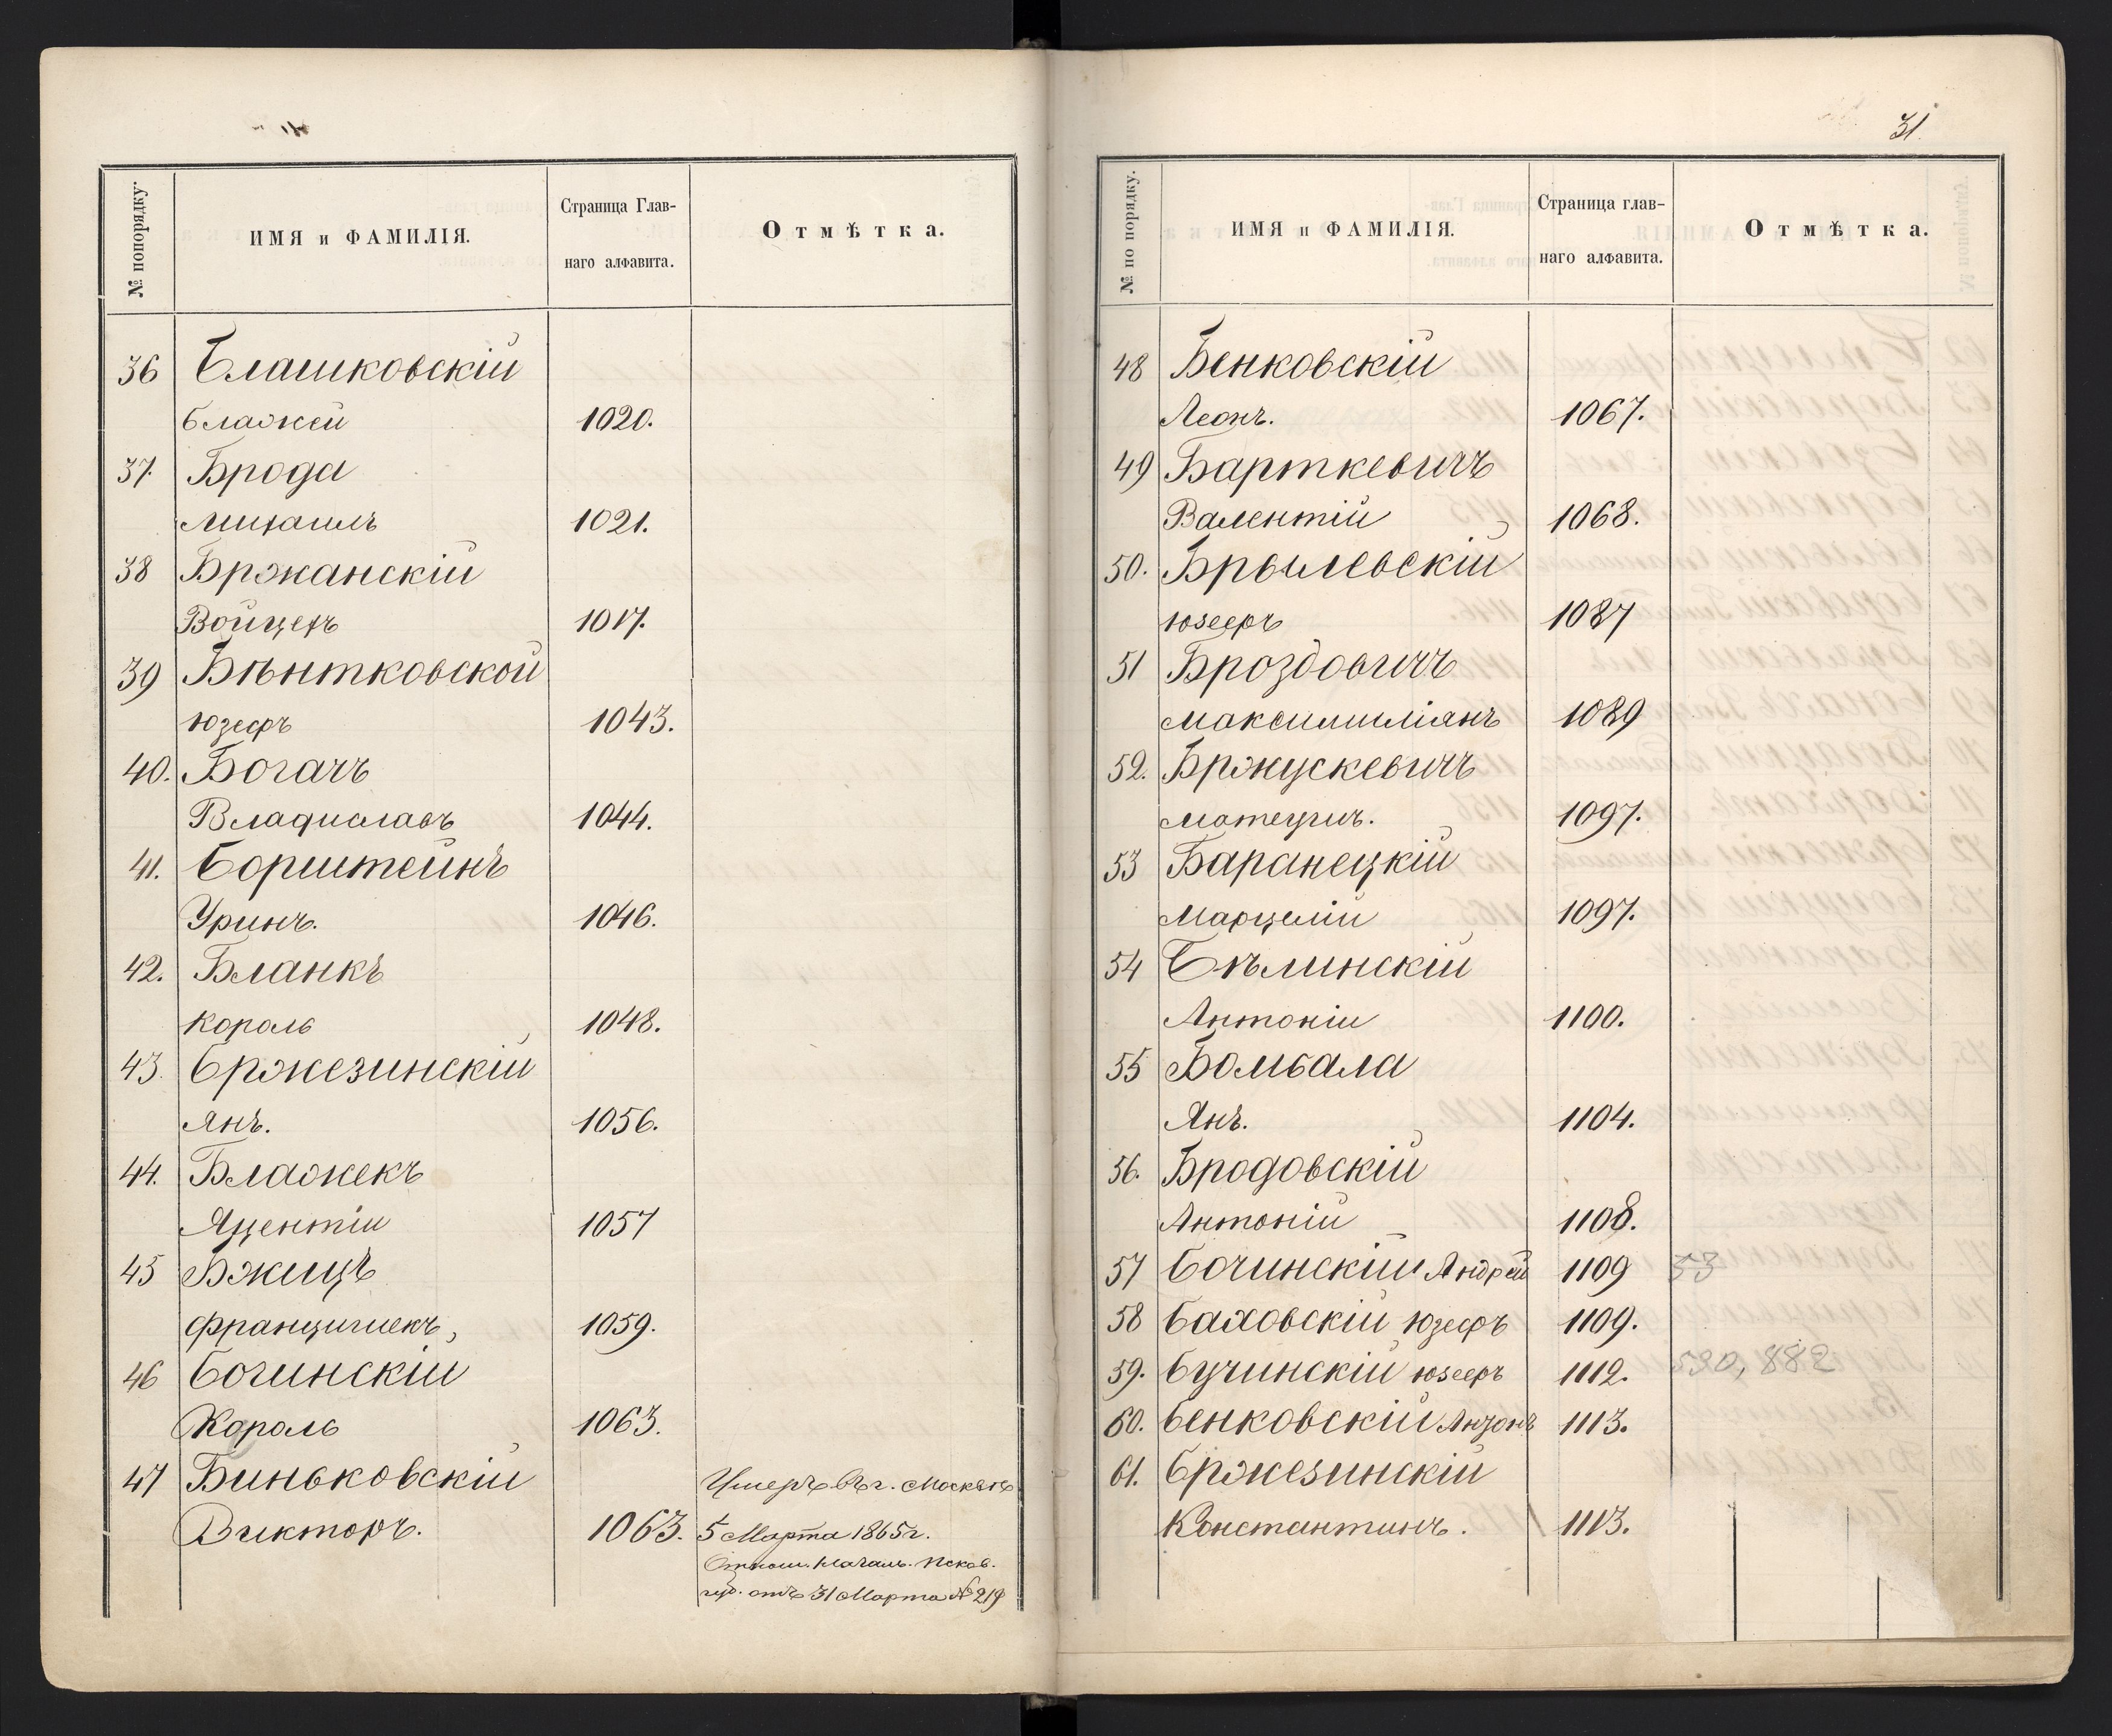 № попорядку.
ИМЯ и ФАМИЛІЯ.
Страница Глав-
наго алфавита.
Отмѣтка.
36 Блашковскій
Блажей 1020.
37. Брода
Михаилъ 1021.
38 Бржанскій
Войцехъ 1017.
39 Бѣнтковской
Юзефъ 1043.
40. Богачъ
Владиславъ 1044.
41. Борштейнъ
Уринъ. 1046.
42. Бланкъ
Король 1048.
43. Бржезинскій
Янъ. 1056.
44. Блажекъ
Яцентій 1057
45 Бжицъ
Францишекъ, 1059.
46 Богинскій
Кароль 1063.
47 Биньковскій Умеръ въ г. Москвѣ
Викторъ. 1063. 5 Марта 1865 г.
Отнош. Началь. Псков.
губ. отъ 31 Марта № 219
31.
№ по порядку.
ИМЯ и ФАМИЛІЯ.
Страница глав-
наго алфавита.
Отмѣтка.
48 Бенковскій
Леонъ. 1067.
49 Барткевичъ
Валентій 1068.
50. Брылевскій
Юзефъ 1087
51 Броздовичъ
Максимиліянъ 1089
52. Бржускевичъ
Матеушъ. 1097.
53 Баранецкій
Марцелій 1097.
54 Бѣлинскій
Антоній 1100.
55 Бомбала
Янъ. 1104.
56. Бродовскій
Антоній 1108.
57 Бочинскій Андрей 1109 53
58 Баховскій Юзефъ 1109.
59. Бучинскій Юзефъ 1112. 590, 882
60. Бенковскій 1113.
61. Бржезинскій
Константинъ. 1113.